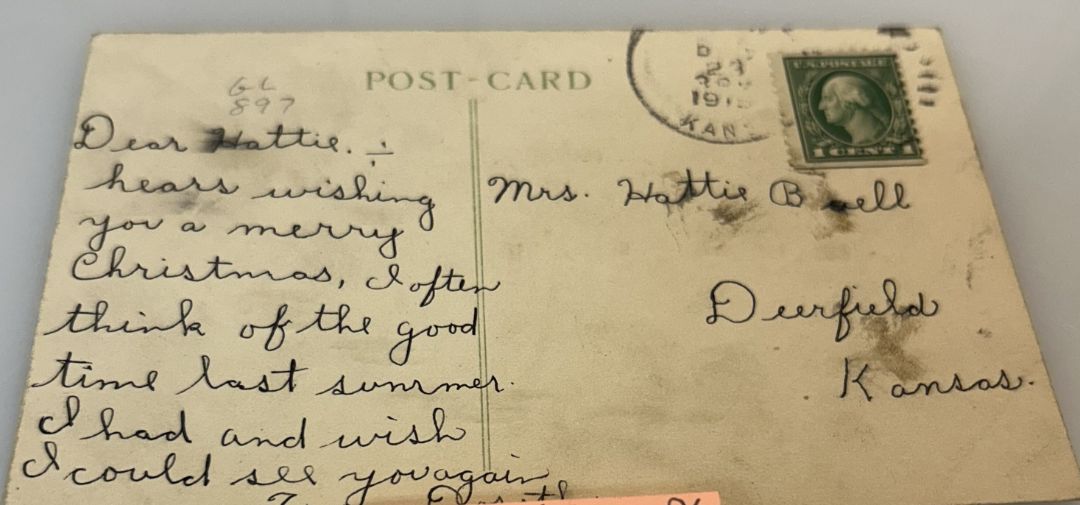 POST-CARD
GL
897
Dear Hattie. ÷
hears wishing
you a merry
Christmas, I often
think of the good
time last summer.
I had and wish
I could see you again
KAN
U.S. POSTAGE
1 CENT 1
Mrs. Hattie
Deerfield
Kansas.